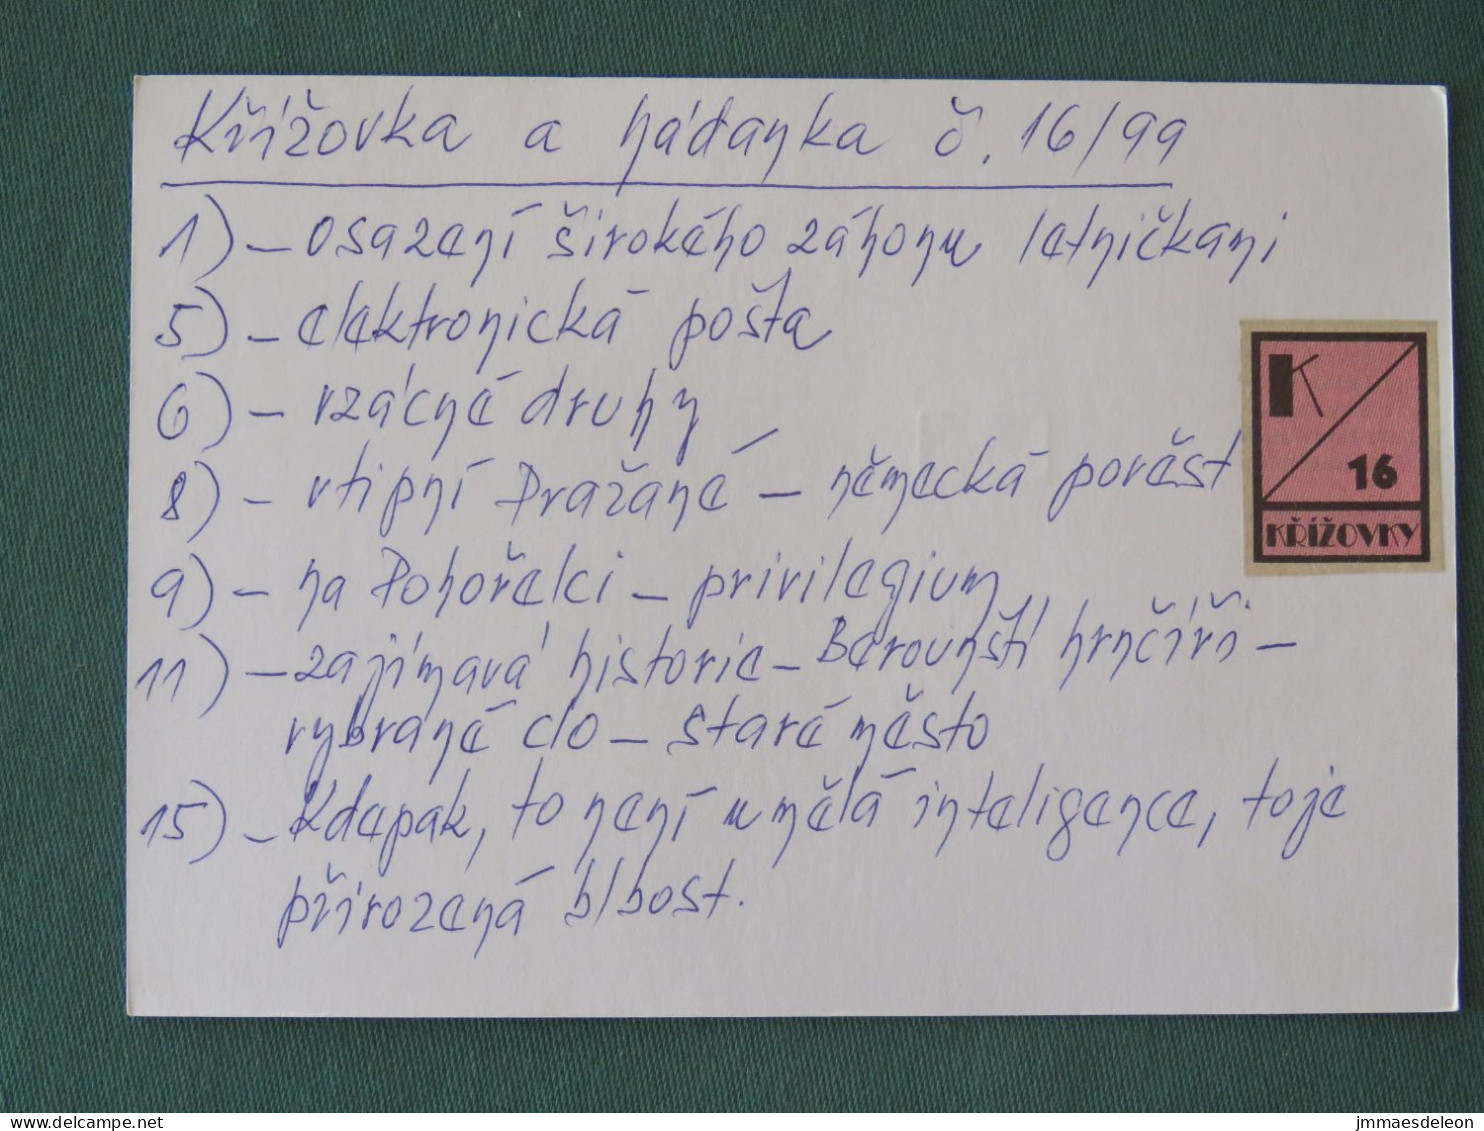 Křížovka a hádanka č. 16/99
1) – osazení širokého záhonu letničkami
5) – elektronická pošta
6) – vzácné druhy
8) – vtipní Pražané – německá pověst
9) – na Pohořelci – privilegium
11) – zajímavá historie – Berounští hrnčíři –
vybrané clo – staré město
15) – Kdepak, to není umělá inteligence, toje
přirozená blbost.
K
16
KŘÍŽOVKY
www.delcampe.net
jmmaesdeleon